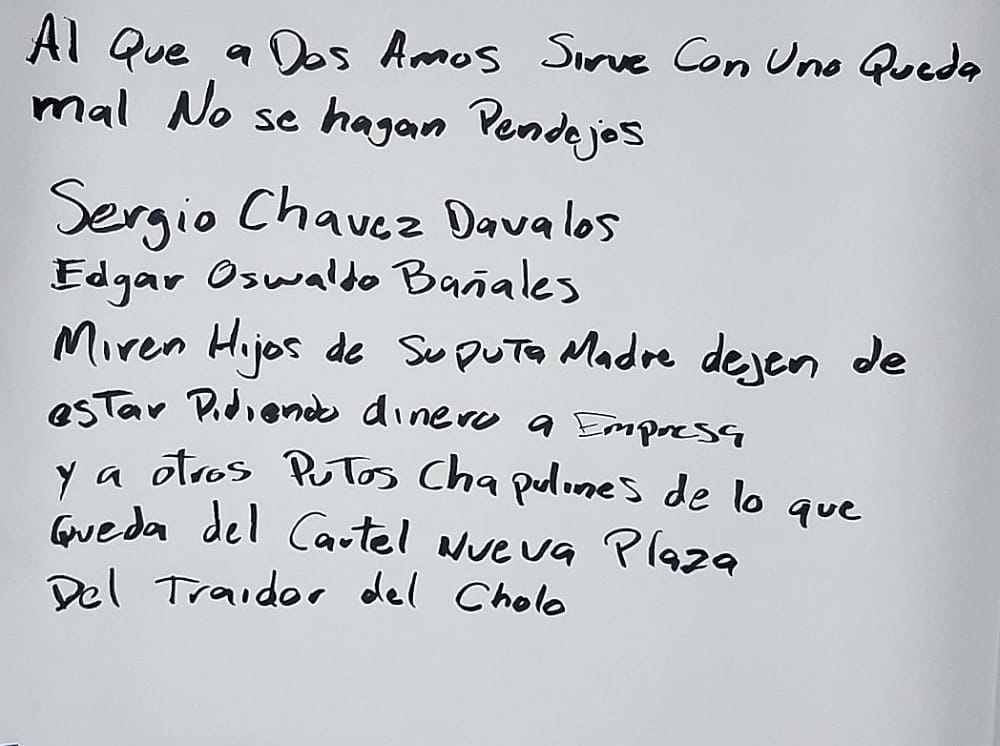 Al Que a Dos Amos Sirve Con Uno Queda
mal No se hagan Pendejos
Sergio Chavez Davalos
Edgar Oswaldo Bañales
Miren Hijos de Su puTa Madre dejen de
esTar Pidiendo dinero a Empresa
y a otros PuTos Chapulines de lo que
Queda del Cartel Nueva Plaza
Del Traidor del Cholo